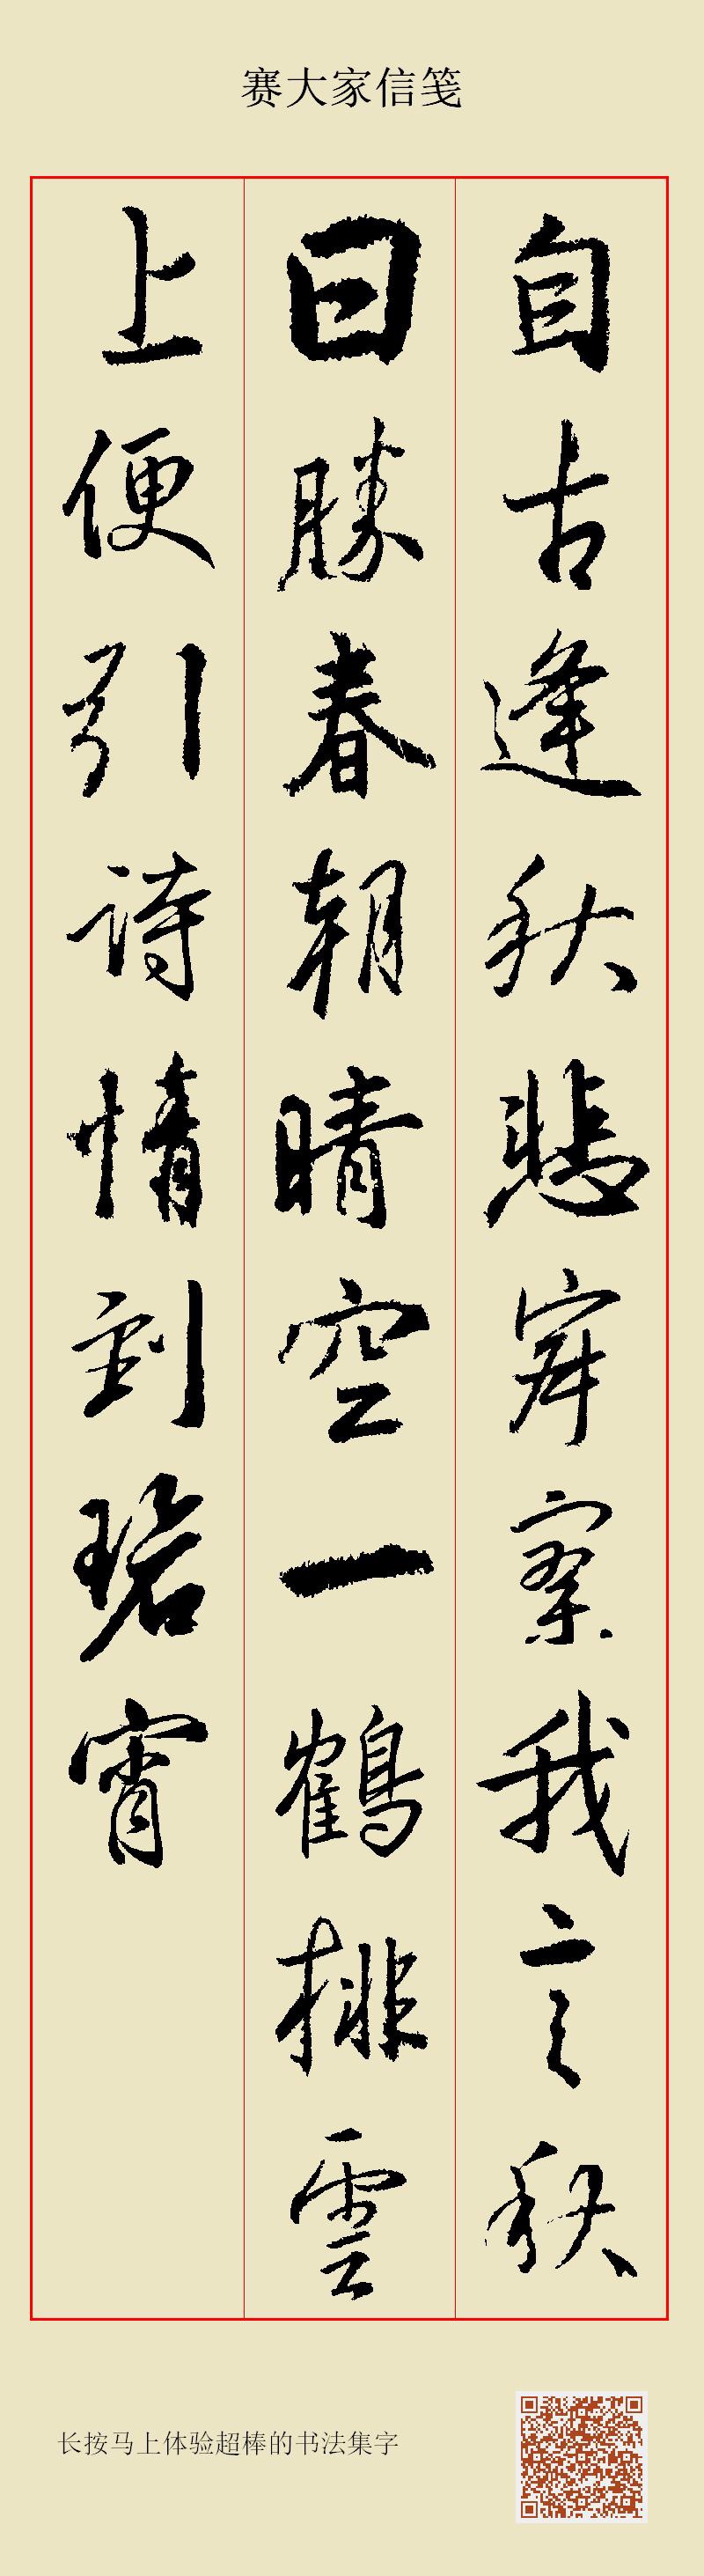 赛大家信笺
自古逢秋悲寂寥我言秋
日勝春朝晴空一鶴排雲
上便引詩情到碧宵
长按马上体验超棒的书法集字